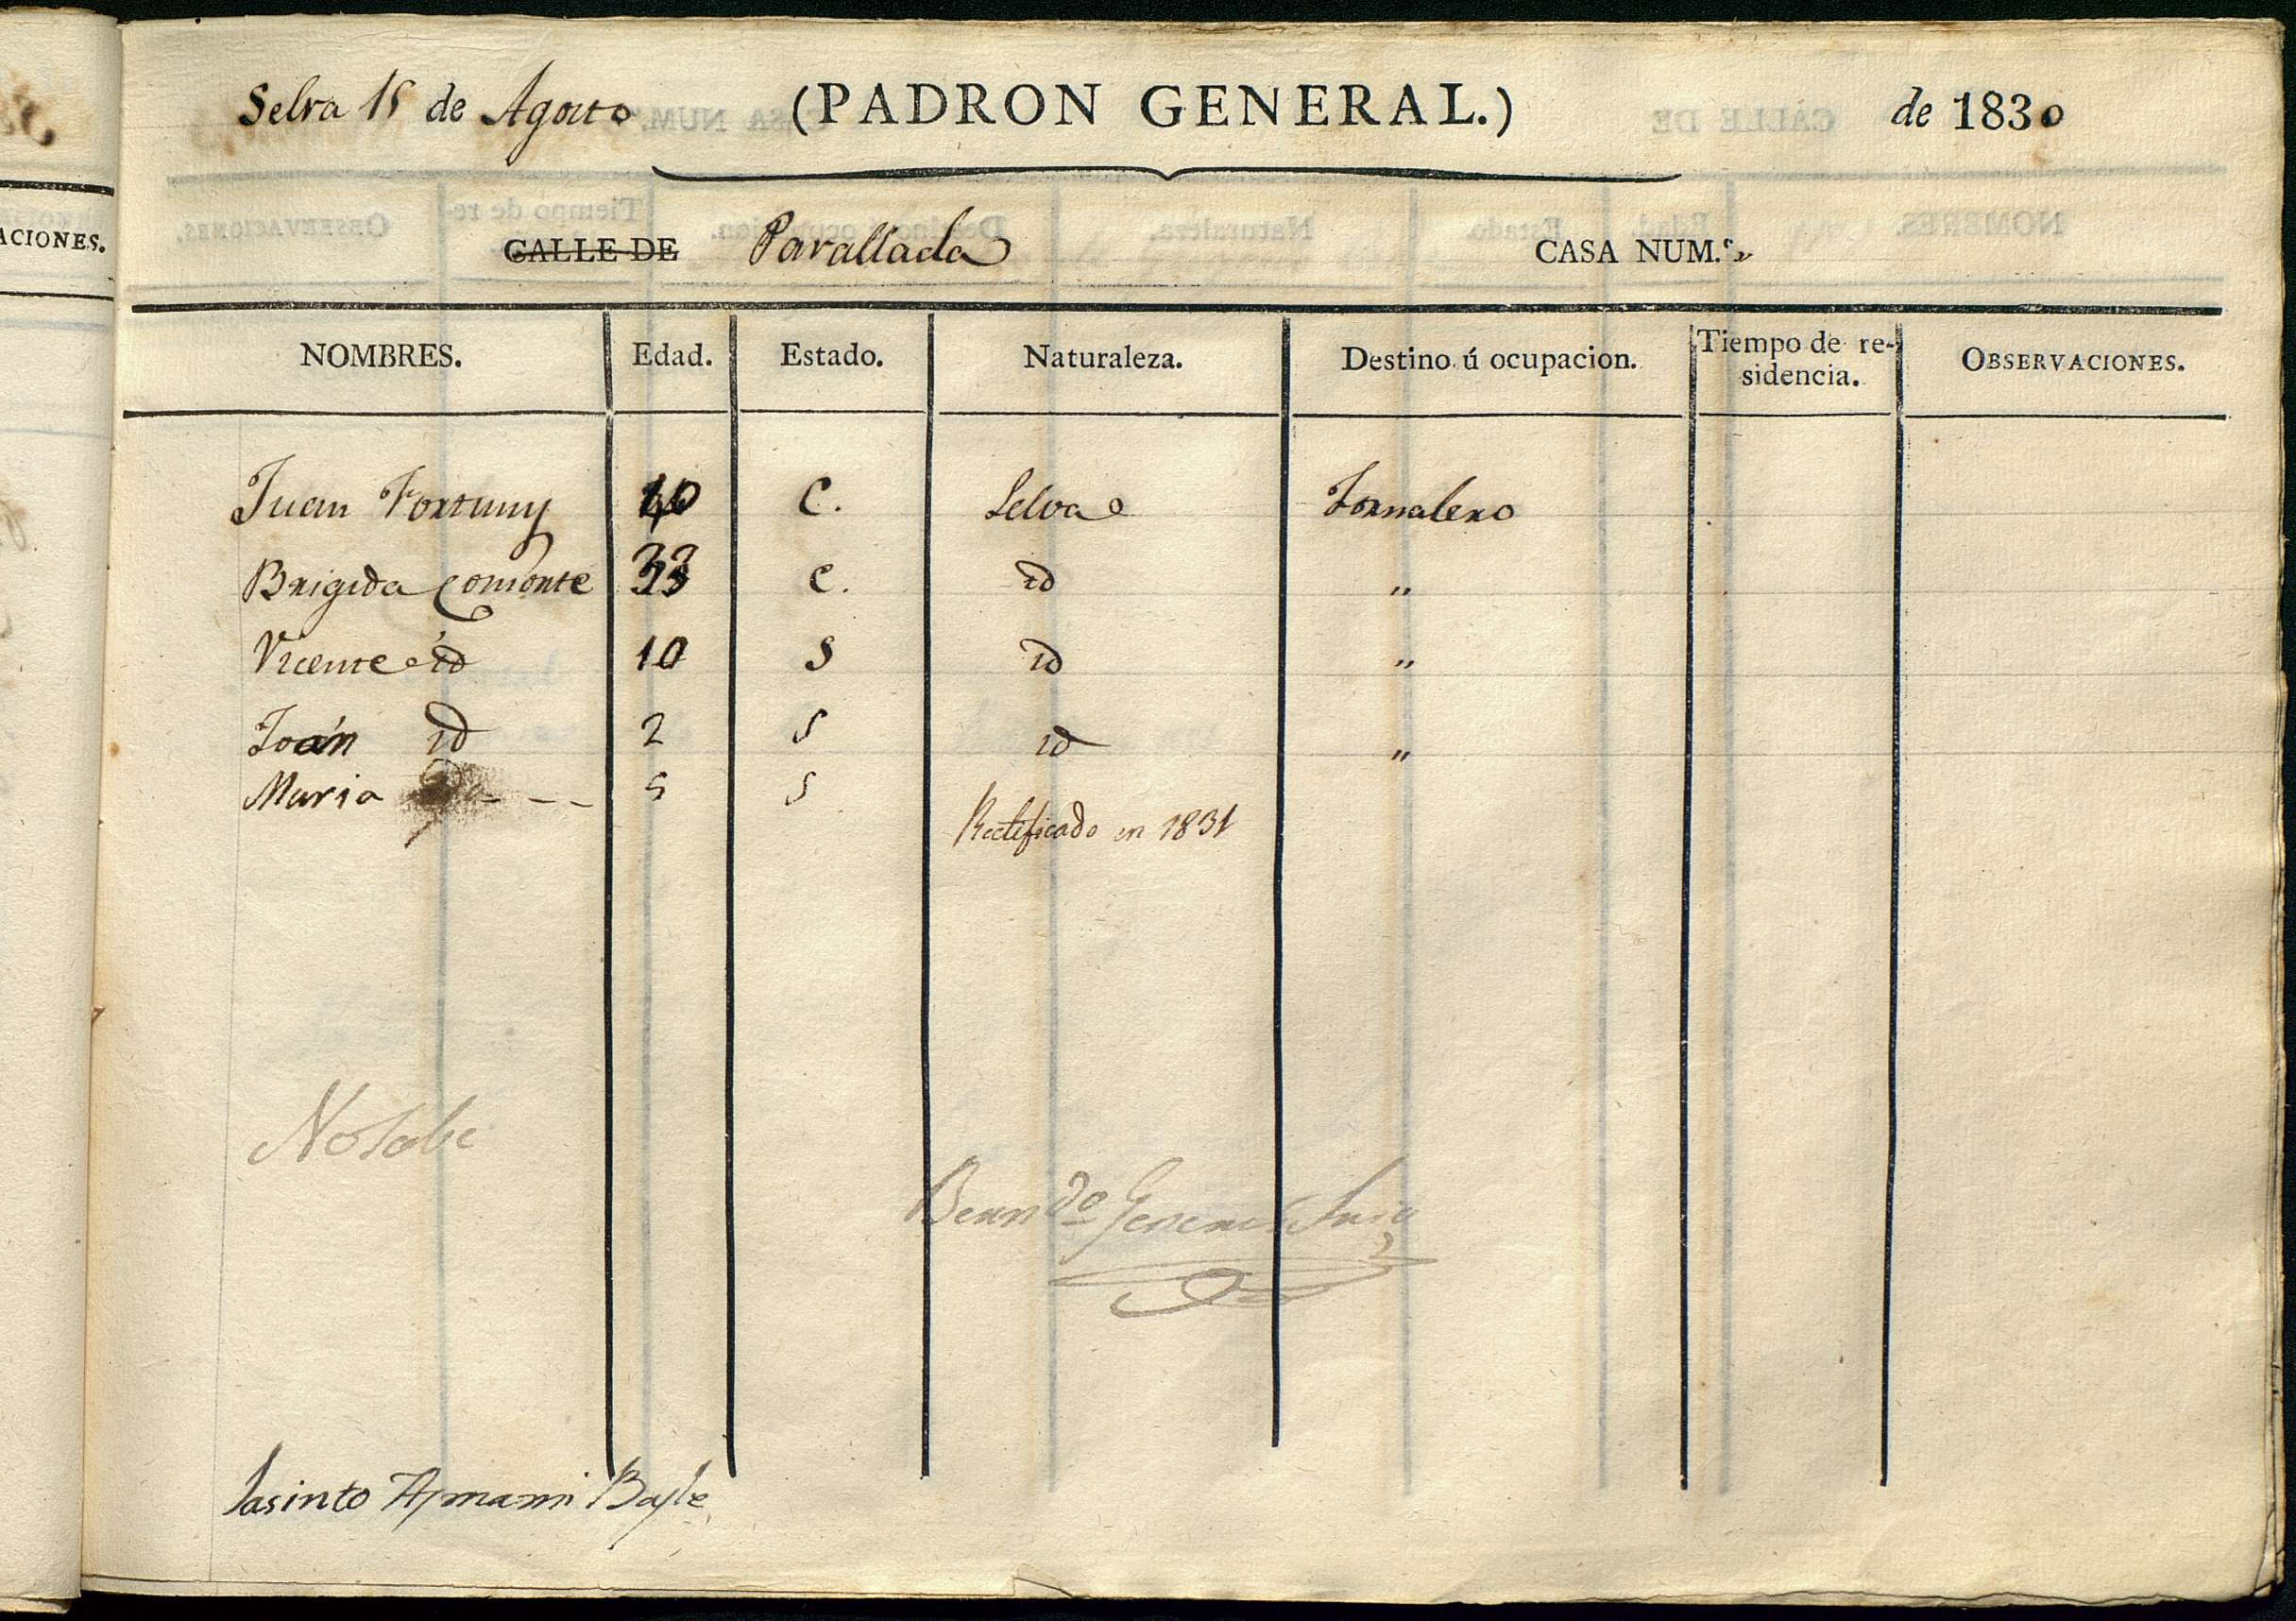 ACIONES.
Selva 15 de Agosto (PADRON GENERAL.) de 1830
CALLE DE Parallada CASA NUM.º
NOMBRES. Edad. Estado. Naturaleza. Destino ú ocupacion. Tiempo de re-sidencia. OBSERVACIONES.
Juan Fortuny 40 C. Selva Jornalero
Brigida Comorte 33 C. id "
Vicente id 10 S id "
Joán id 2 S id "
Maria 5 S
Rectificado en 1831
No Sabe
Berndo
Jasinto Aymami Bayle